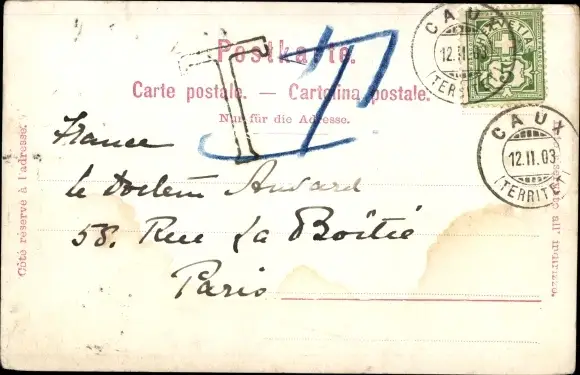 Postkarte.
Carte postale. — Cartolina postale.
Nur für die Adresse.
Côté réservé à l'adresse.
T
HELVETIA
5
CAUX
12.II.03
(TERRITET)
CAUX
12.II.03
(TERRITET)
France
le Docteur
58. Rue La Boëtie
Paris
all' indirizzo.